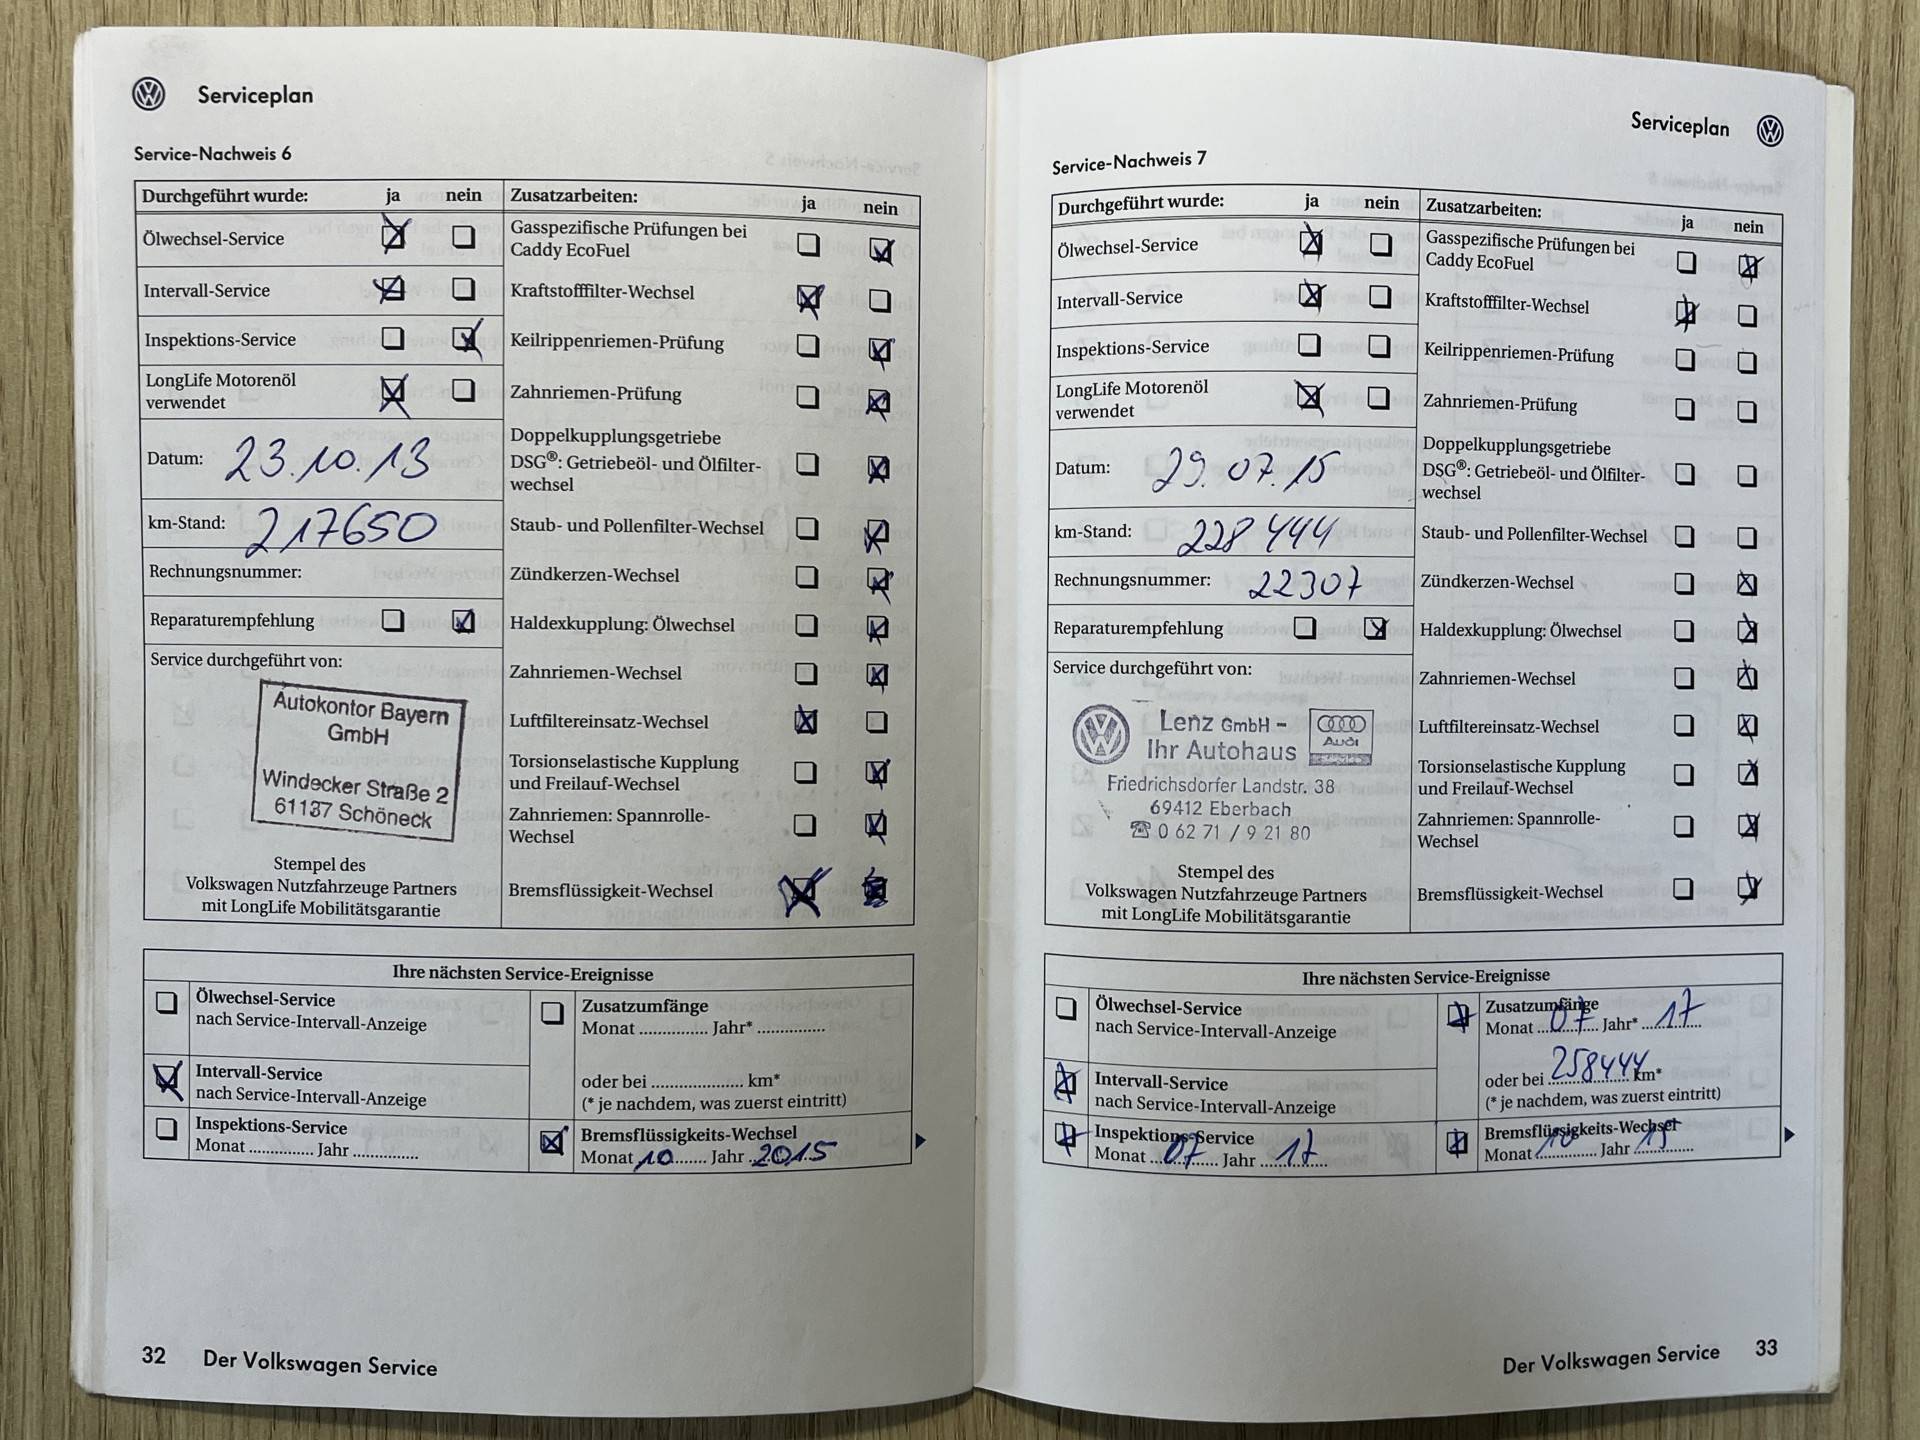 Serviceplan
Service-Nachweis 6
Durchgeführt wurde: ja nein
Ölwechsel-Service
Intervall-Service
Inspektions-Service
LongLife Motorenöl
verwendet
Datum: 23.10.13
km-Stand: 217650
Rechnungsnummer:
Reparaturempfehlung
Service durchgeführt von:
Autokontor Bayern
GmbH
Windecker Straße 2
61137 Schöneck
Stempel des
Volkswagen Nutzfahrzeuge Partners
mit LongLife Mobilitätsgarantie
Zusatzarbeiten: ja nein
Gasspezifische Prüfungen bei
Caddy EcoFuel
Kraftstofffilter-Wechsel
Keilrippenriemen-Prüfung
Zahnriemen-Prüfung
Doppelkupplungsgetriebe
DSG®: Getriebeöl- und Ölfilter-
wechsel
Staub- und Pollenfilter-Wechsel
Zündkerzen-Wechsel
Haldexkupplung: Ölwechsel
Zahnriemen-Wechsel
Luftfiltereinsatz-Wechsel
Torsionselastische Kupplung
und Freilauf-Wechsel
Zahnriemen: Spannrolle-
Wechsel
Bremsflüssigkeit-Wechsel
Ihre nächsten Service-Ereignisse
Ölwechsel-Service
nach Service-Intervall-Anzeige
Intervall-Service
nach Service-Intervall-Anzeige
Inspektions-Service
Monat .............. Jahr ..............
Zusatzumfänge
Monat ............... Jahr* ...............
oder bei .................... km*
(* je nachdem, was zuerst eintritt)
Bremsflüssigkeits-Wechsel
Monat 10 Jahr 2015
32 Der Volkswagen Service
Serviceplan
Service-Nachweis 7
Durchgeführt wurde: ja nein
Ölwechsel-Service
Intervall-Service
Inspektions-Service
LongLife Motorenöl
verwendet
Datum: 29.07.15
km-Stand: 228444
Rechnungsnummer: 22307
Reparaturempfehlung
Service durchgeführt von:
Lenz GmbH -
Ihr Autohaus
Audi
Friedrichsdorfer Landstr. 38
69412 Eberbach
☎ 0 62 71 / 9 21 80
Stempel des
Volkswagen Nutzfahrzeuge Partners
mit LongLife Mobilitätsgarantie
Zusatzarbeiten: ja nein
Gasspezifische Prüfungen bei
Caddy EcoFuel
Kraftstofffilter-Wechsel
Keilrippenriemen-Prüfung
Zahnriemen-Prüfung
Doppelkupplungsgetriebe
DSG®: Getriebeöl- und Ölfilter-
wechsel
Staub- und Pollenfilter-Wechsel
Zündkerzen-Wechsel
Haldexkupplung: Ölwechsel
Zahnriemen-Wechsel
Luftfiltereinsatz-Wechsel
Torsionselastische Kupplung
und Freilauf-Wechsel
Zahnriemen: Spannrolle-
Wechsel
Bremsflüssigkeit-Wechsel
Ihre nächsten Service-Ereignisse
Ölwechsel-Service
nach Service-Intervall-Anzeige
Intervall-Service
nach Service-Intervall-Anzeige
Inspektions-Service
Monat 07 Jahr 17
Zusatzumfänge
Monat 07 Jahr* 17
oder bei 258444 km*
(* je nachdem, was zuerst eintritt)
Bremsflüssigkeits-Wechsel
Monat 10 Jahr 15
Der Volkswagen Service 33